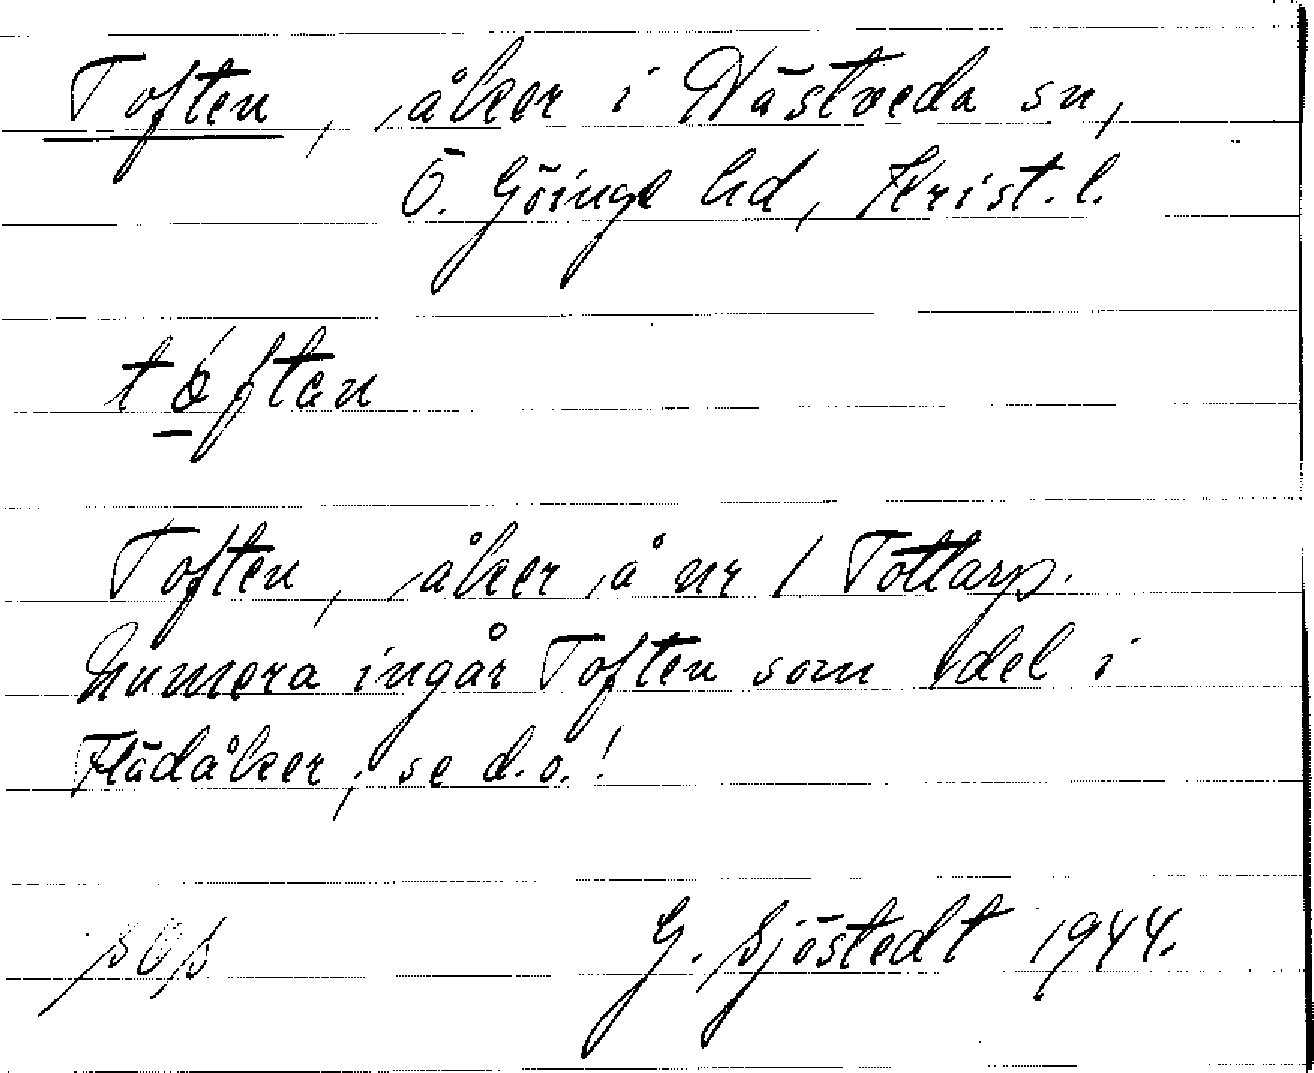 Toften, åker i Nästveda sn,
Ö. Göinge hd, Krist. l.
tóften
Toften, åker å nr 1 Tottarp.
Numera ingår Toften som del i
Flädåker, se d.o.!
G. Sjöstedt 1944.